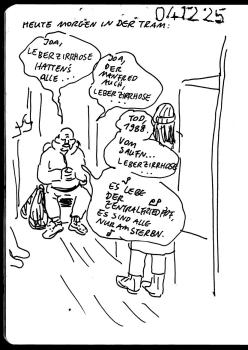 04.12.25
HEUTE MORGEN IN DER TRAM:
JOA,
LEBERZIRRHOSE
HATTENS
ALLE...
JOA,
DER
MANFRED
AUCH,
LEBERZIRRHOSE
...
TOD,
1988.
VOM
SAUFN...
LEBERZIRRHOSE
ES LEBE
DER
ZENTRALFRIEDHOF,
ES SIND ALLE
NUR AM STERBN.